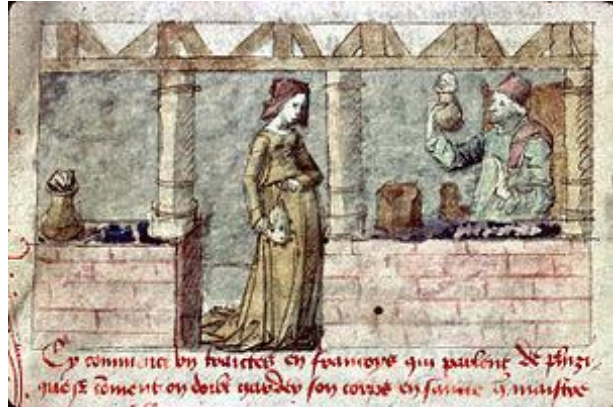 Cy commance vn traictes en francoys qui parlent de phizi
que et coment on doibt garder son corps en sante q maistre